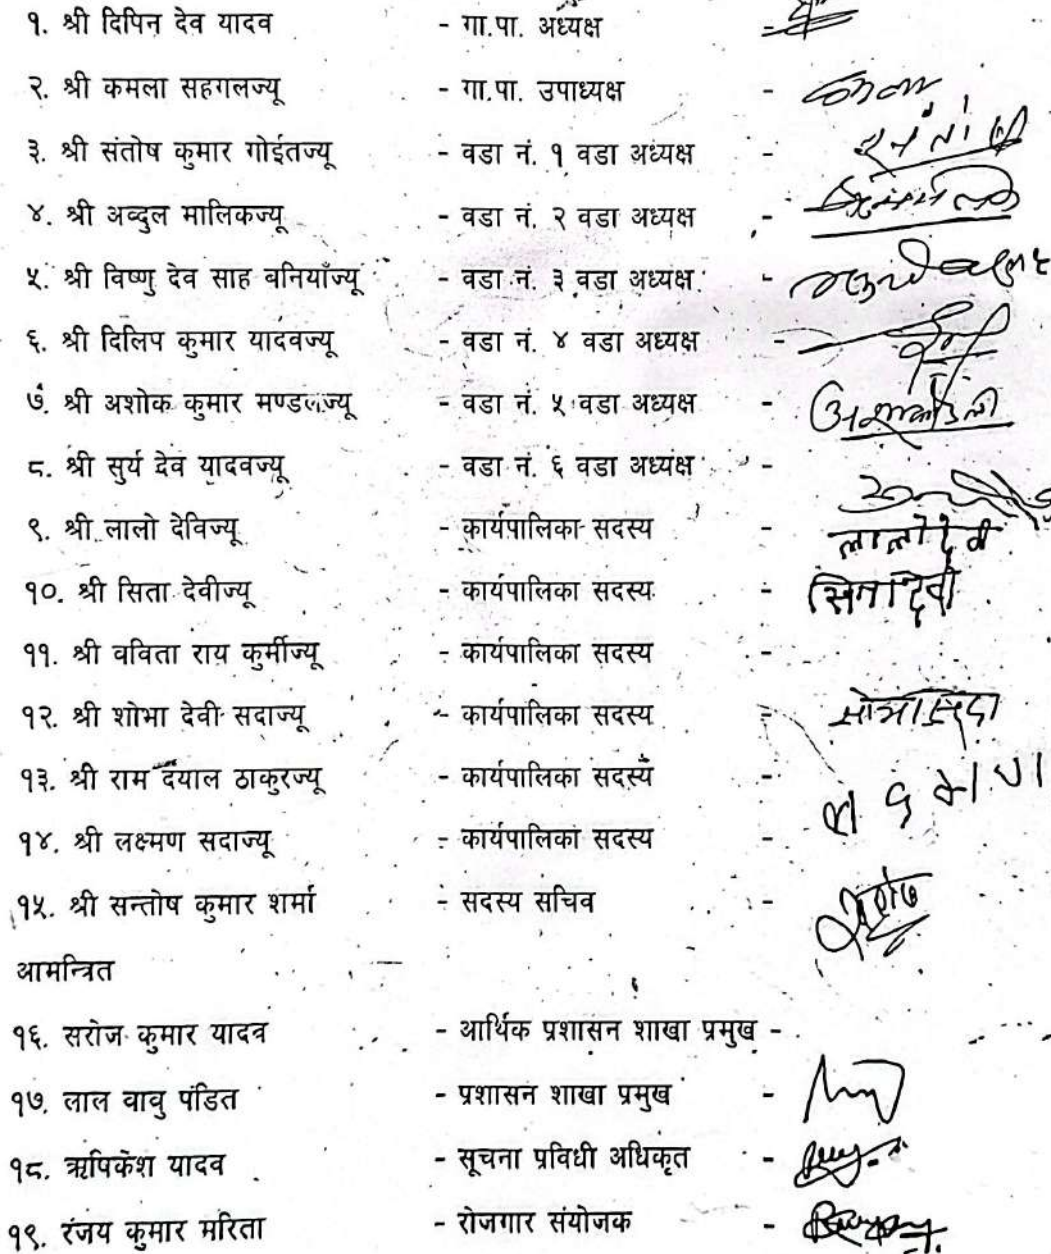 १. श्री दिपिन देव यादव - गा.पा. अध्यक्ष -
२. श्री कमला सहगलज्यू - गा.पा. उपाध्यक्ष - कमला
३. श्री संतोष कुमार गोईतज्यू - वडा नं. १ वडा अध्यक्ष -
४. श्री अव्दुल मालिकज्यू - वडा नं. २ वडा अध्यक्ष -
५. श्री विष्णु देव साह वनियाँज्यू - वडा नं. ३ वडा अध्यक्ष -
६. श्री दिलिप कुमार यादवज्यू - वडा नं. ४ वडा अध्यक्ष -
७. श्री अशोक कुमार मण्डलज्यू - वडा नं. ५ वडा अध्यक्ष -
८. श्री सुर्य देव यादवज्यू - वडा नं. ६ वडा अध्यक्ष -
९. श्री लालो देविज्यू - कार्यपालिका सदस्य - लालो देवी
१०. श्री सिता देवीज्यू - कार्यपालिका सदस्य - सिता देवी
११. श्री वविता राय कुर्मीज्यू - कार्यपालिका सदस्य -
१२. श्री शोभा देवी सदाज्यू - कार्यपालिका सदस्य -
१३. श्री राम दयाल ठाकुरज्यू - कार्यपालिका सदस्य -
१४. श्री लक्ष्मण सदाज्यू - कार्यपालिका सदस्य -
१५. श्री सन्तोष कुमार शर्मा - सदस्य सचिव -
आमन्त्रित
१६. सरोज कुमार यादव - आर्थिक प्रशासन शाखा प्रमुख -
१७. लाल वावु पंडित - प्रशासन शाखा प्रमुख -
१८. ऋषिकेश यादव - सूचना प्रविधी अधिकृत -
१९. रंजय कुमार मरिता - रोजगार संयोजक -